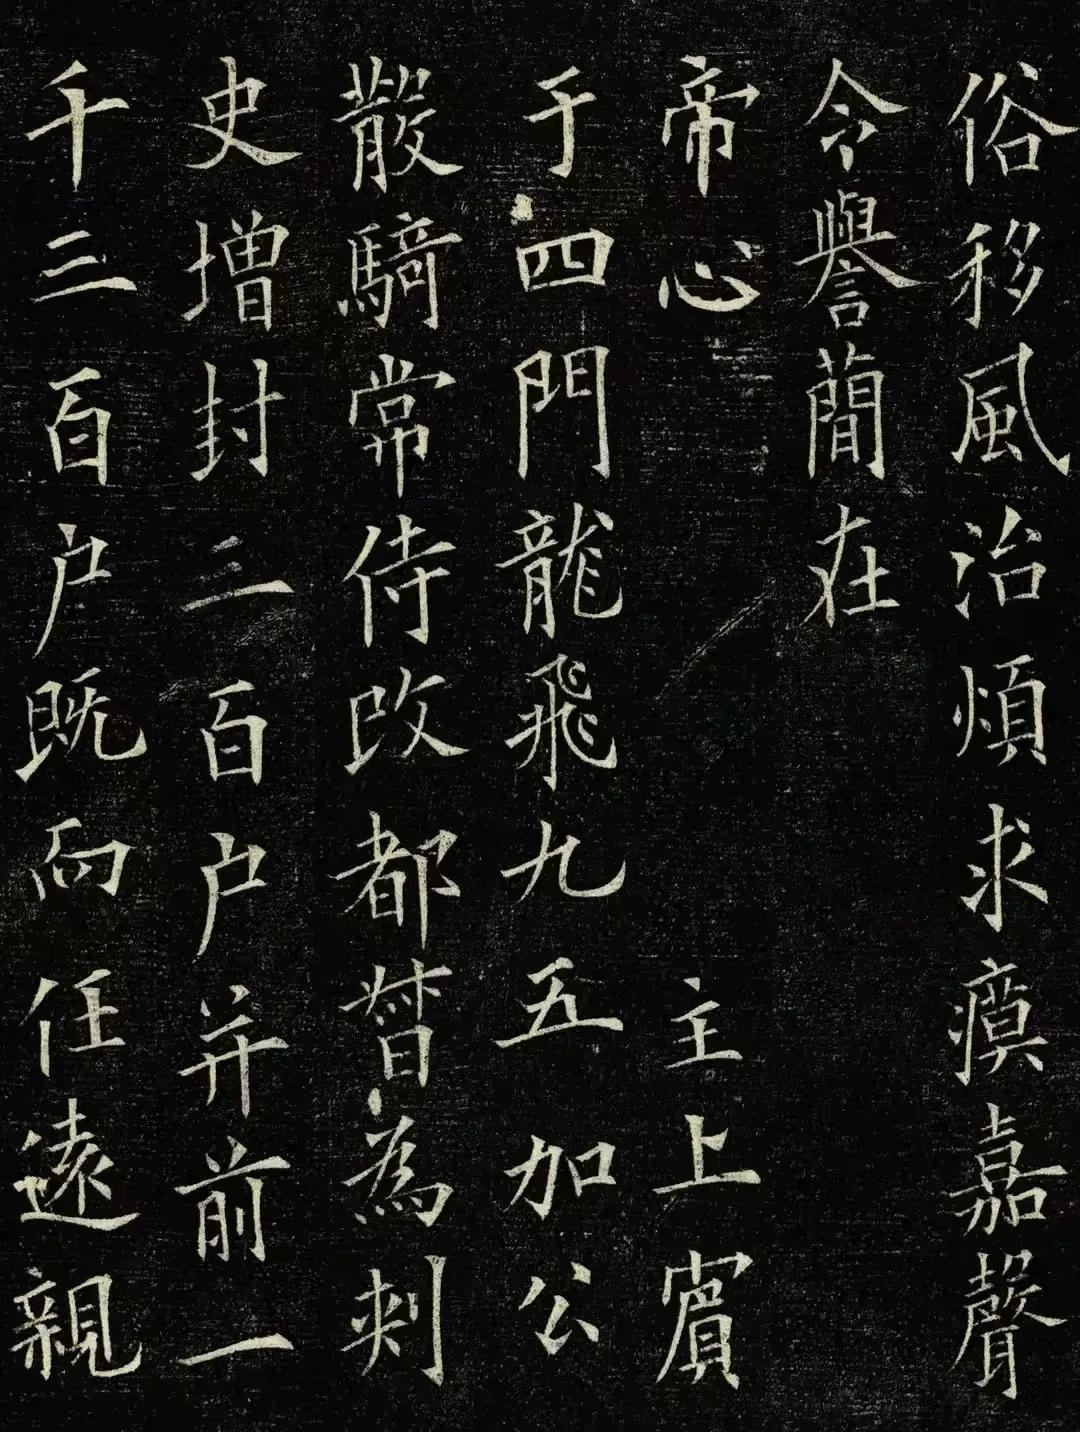 俗移風治煩求瘼嘉聲
令譽簡在
帝心 主上賓
于四門龍飛九五加公
散騎常侍改都督為刺
史増封三百户并前一
千三百户既向任遠親